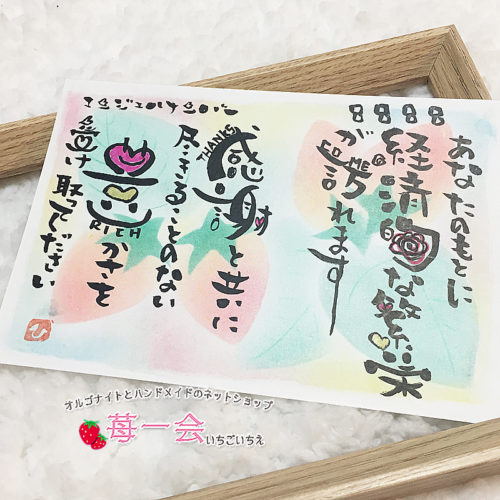 エンジェルナンバー
8888
あなたのもとに
経済的な繁栄
が訪れます
COME
感謝と共に
THANKS
尽きることのない
豊かさを
RICH
受け取ってください
オルゴナイトとハンドメイドのネットショップ
苺一会いちごいちえ